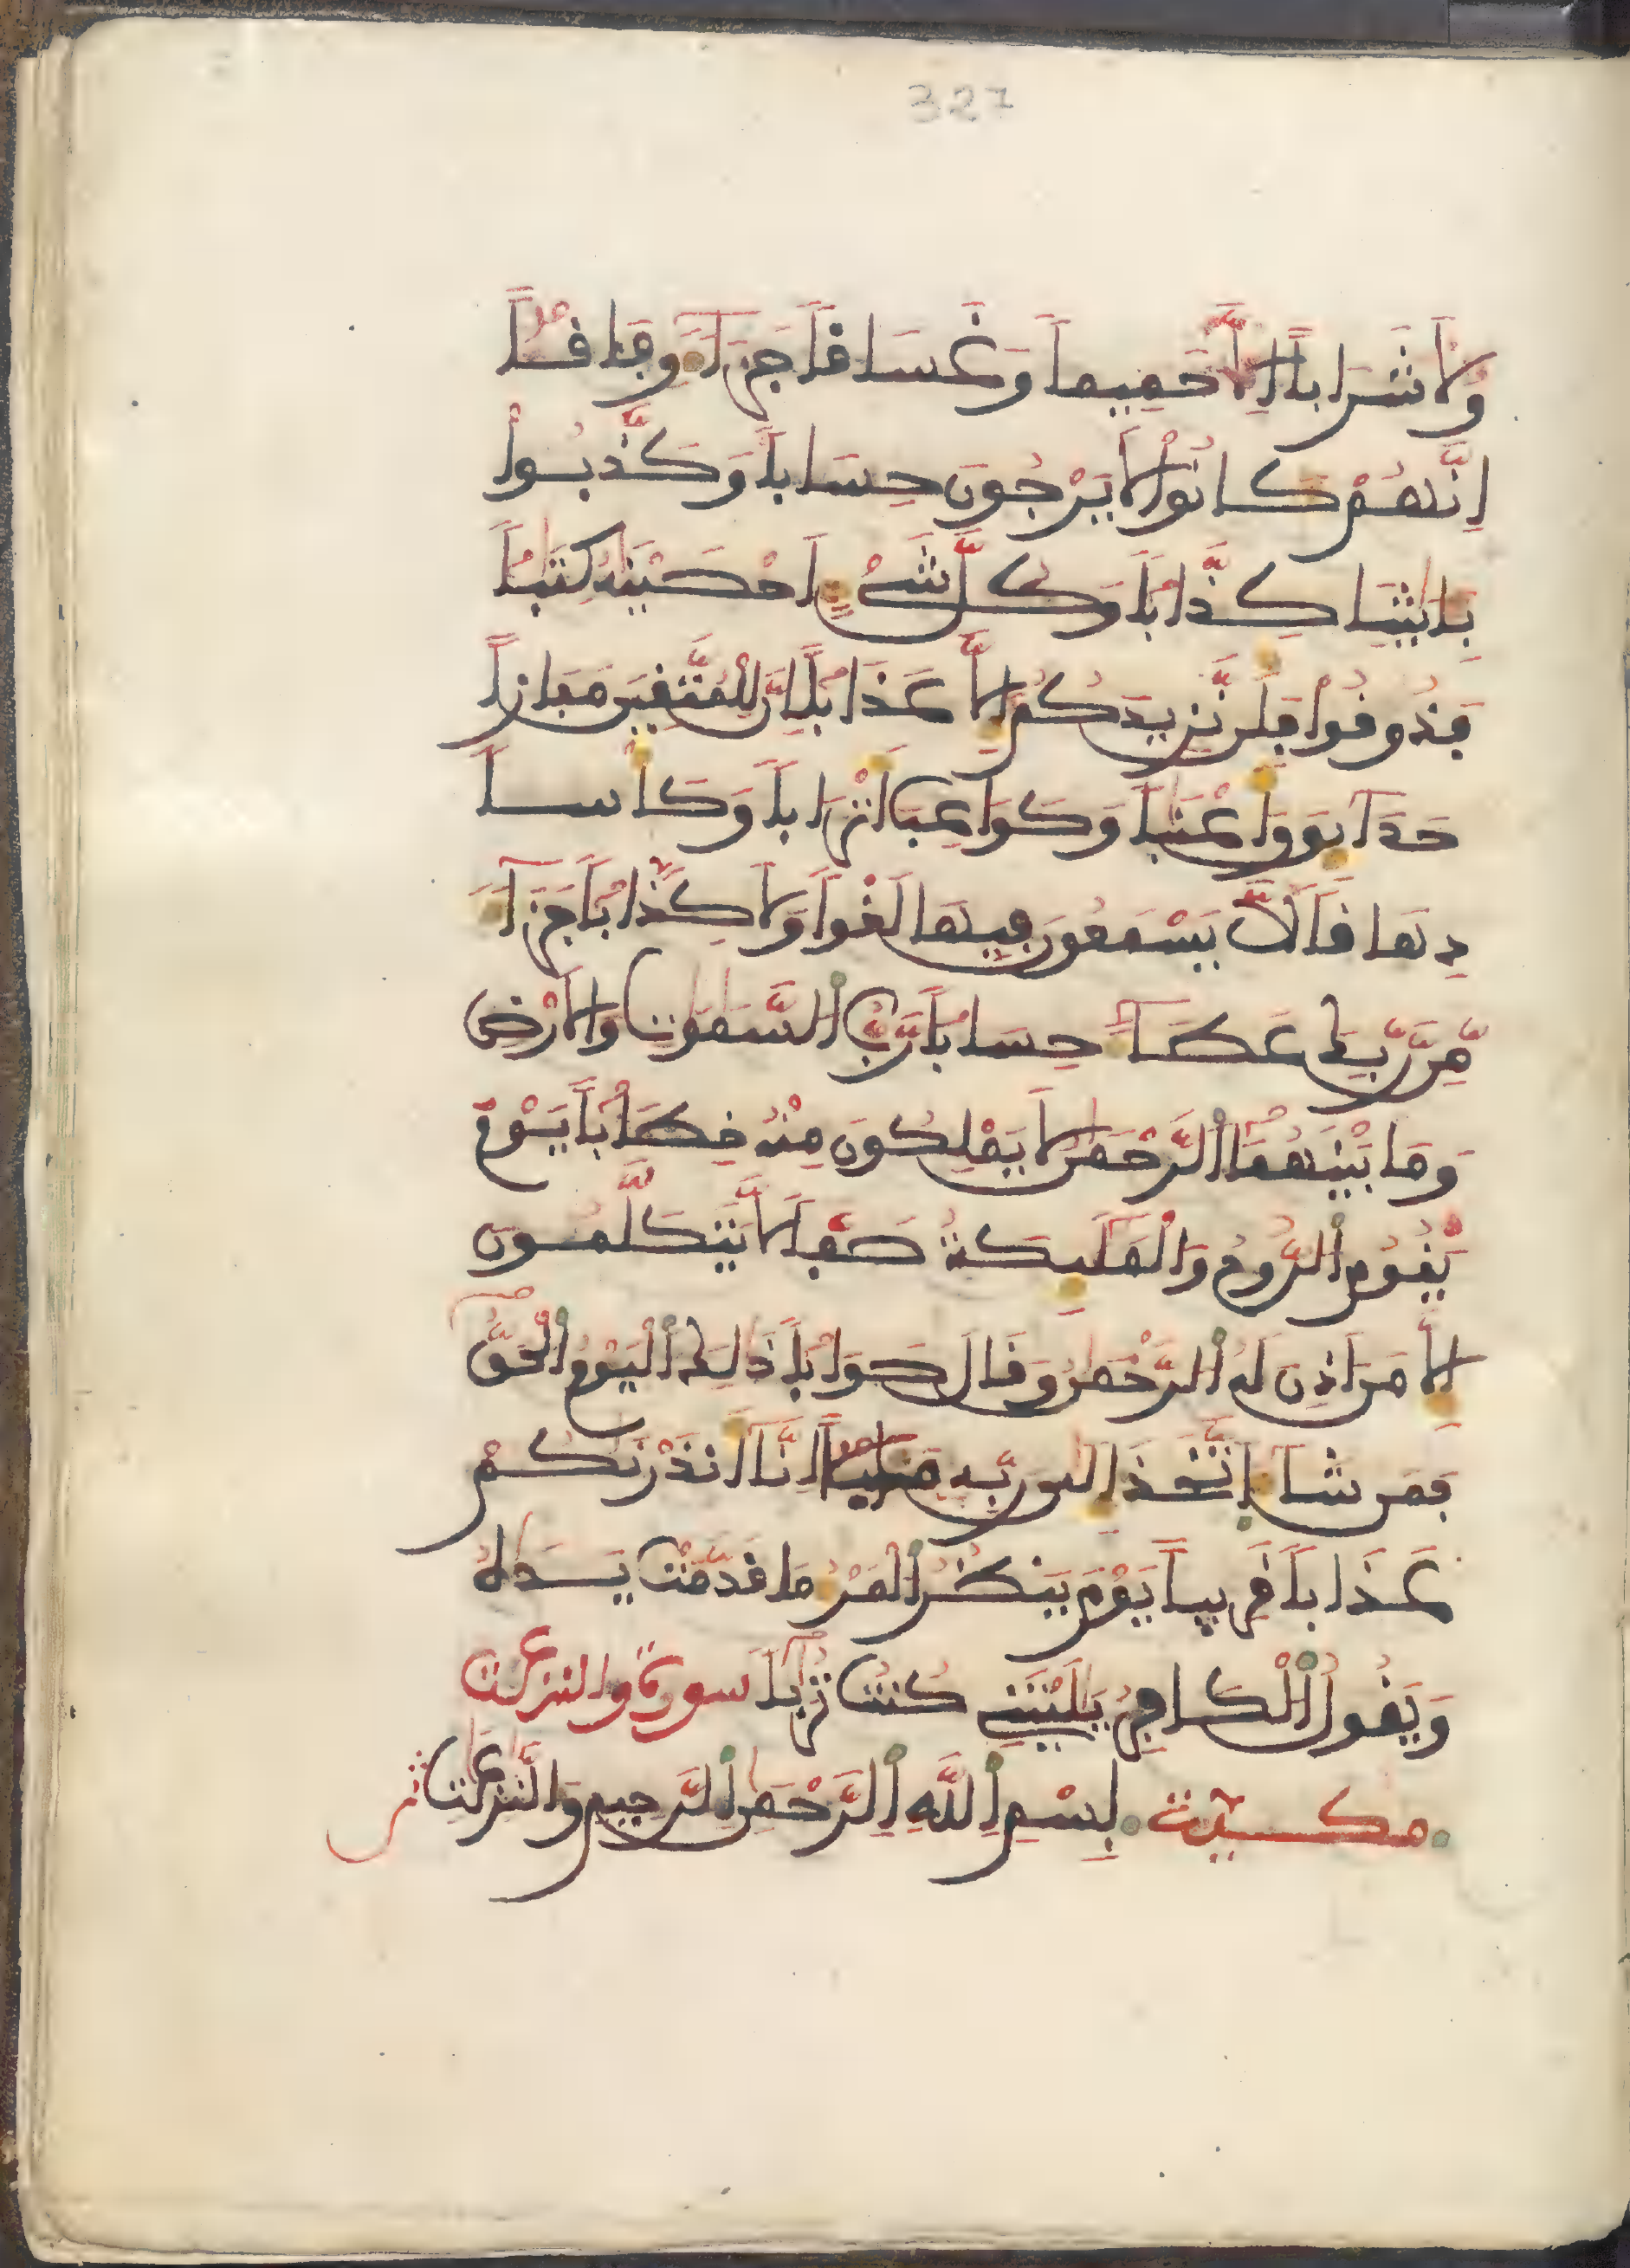 327
وَلَا شَرَاباً اِلَّا حَمِيماً وَغَسَافاً جَزَآءً وِفَافاً
اِنَّهُمْ كَانُواْ لَا يَرْجُونَ حِسَاباً وَكَذَّبُواْ
بِـَٔايَٰتِنَا كِذَّاباً وَكُلَّ شَےْءٍ اَحْصَيْنَٰهُ كِتَٰباً
فَذُوفُواْ فَلَن نَّزِيدَكُمُ إِلَّا عَذَاباً اِنَّ لِلْمُتَّفِينَ مَفَازاً
حَدَآئِقَ وَأَعْنَٰباً وَكَوَاعِبَ أَتْرَاباً وَكَأْساً
دِهَافاً لَّا يَسْمَعُونَ فِيهَا لَغْواً وَلَا كِذَّاباً جَزَآءً
مِّن رَّبِّكَ عَطَآءً حِسَاباً رَّبُّ اُلسَّمَٰوَٰتِ وَالَارْضِ
وَمَا بَيْنَهُمَا اَلرَّحْمَٰنُ لَا يَمْلِكُونَ مِنْهُ خِطَاباً يَوْمَ
يَفُومُ اُلرُّوحُ وَالْمَلَٰٓئِكَةُ صَفّاً لَّا يَتَكَلَّمُونَ
إِلَّا مَنَ اَذِنَ لَهُ اُلرَّحْمَٰنُ وَفَالَ صَوَاباً ذَٰلِكَ اَلْيَوْمُ اُلْحَقُّ
فَمَن شَآءَ اَتَّخَذَ إِلَىٰ رَبِّهِۦ مَـَٔاباً اِنَّآ أَنذَرْنَٰكُمْ
عَذَاباً فَرِيباً يَوْمَ يَنظُرُ اُلْمَرْءُ مَا فَدَّمَتْ يَدَٰهُ
وَيَفُولُ اُلْكَافِرُ يَٰلَيْتَنِے كُنتُ تُرَٰباً سورة والنزعت
مكية بِسْمِ اِللَّهِ اِلرَّحْمَٰنِ اِلرَّحِيمِ وَالنَّٰزِعَٰتِ